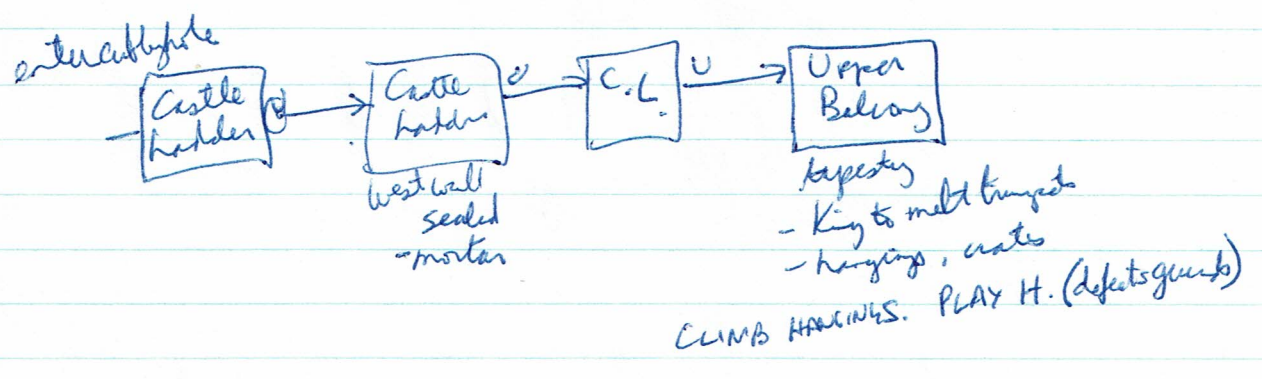 enter cubbyhole
Castle
Ladder
U
Castle
Ladder
U
C.L.
U
Upper
Balcony
west wall
sealed
- mortar
tapestry
- King to melt trumpets
- hangings, crates
CLIMB HANGINGS. PLAY H. (defeats guards)